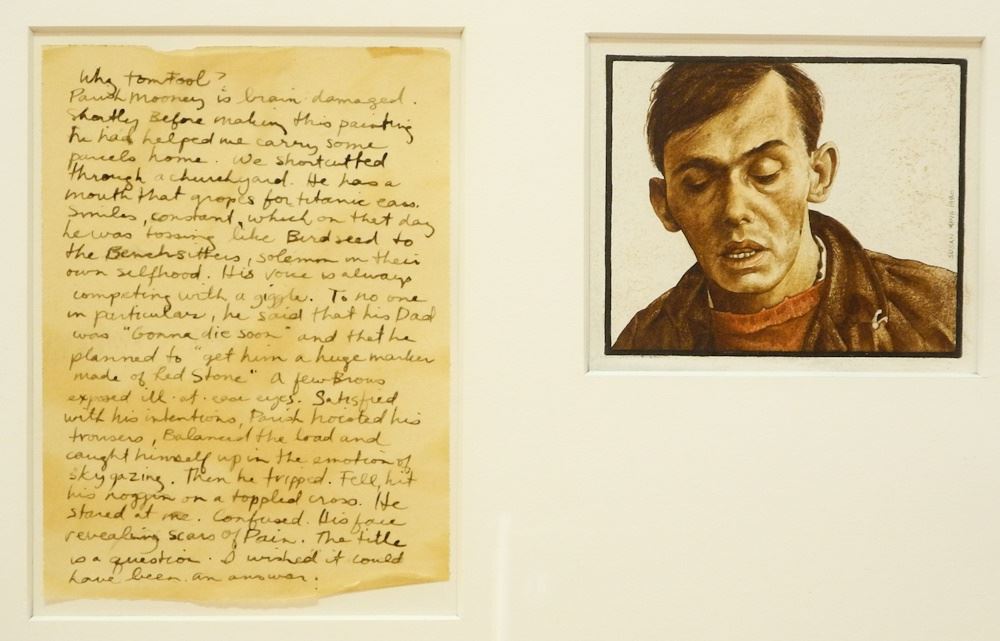 Why Tom Fool?
Parish Mooney is brain damaged.
Shortly Before making this painting
he had helped me carry some
parcels home. We shortcutted
through a churchyard. He has a
mouth that gropes for titanic ease.
Smiles, constant, which on that day
he was tossing like Birdseed to
the Benchsitters, solemn in their
own selfhood. His voice is always
competing with a giggle. To no one
in particular, he said that his Dad
was "Gonna die soon" and that he
planned to "get him a huge marker
made of Red Stone" A few Brows
exposed ill-at-ease eyes. Satisfied
with his intentions, Parish hoisted his
trousers, Balanced the load and
caught himself up in the emotion of
sky gazing. Then he tripped. Fell, hit
his noggin on a toppled cross. He
stared at me. Confused. His face
revealing scars of Pain. The title
is a question. I wished it could
have been an answer.